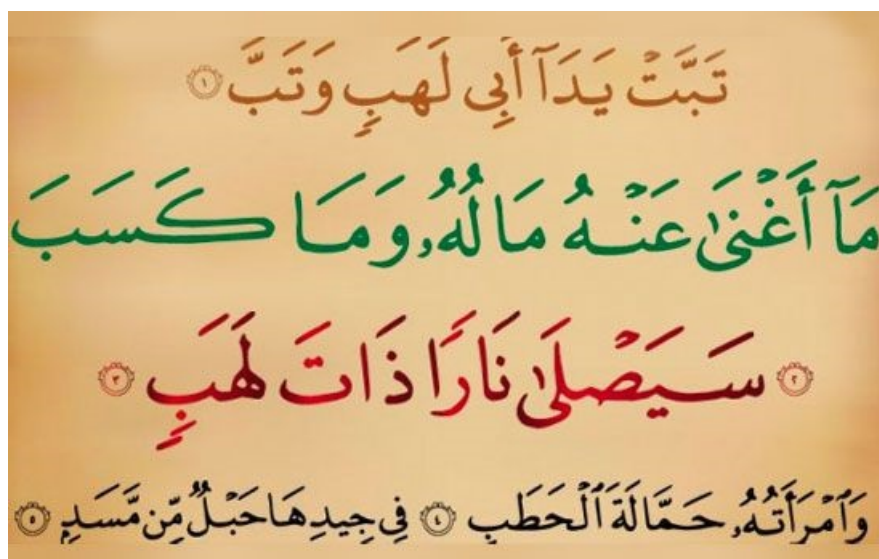 تَبَّتْ يَدَآ أَبِى لَهَبٍ وَتَبَّ ١
مَآ أَغْنَىٰ عَنْهُ مَالُهُۥ وَمَا كَسَبَ
٢ سَيَصْلَىٰ نَارًا ذَاتَ لَهَبٍ ٣
وَٱمْرَأَتُهُۥ حَمَّالَةَ ٱلْحَطَبِ ٤ فِى جِيدِهَا حَبْلٌ مِّن مَّسَدٍۭ ٥